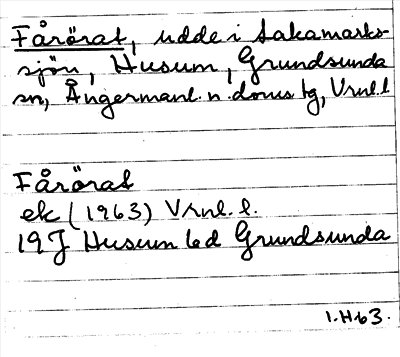 Fårörat, udde i Lakamarks-
sjön, Husum, Grundsunda
sn, Ångermanl. n. doms tg, Vrnl. l
Fårörat
ek (1963) Vrnl. l.
19J Husum 6d Grundsunda
1.H.63.